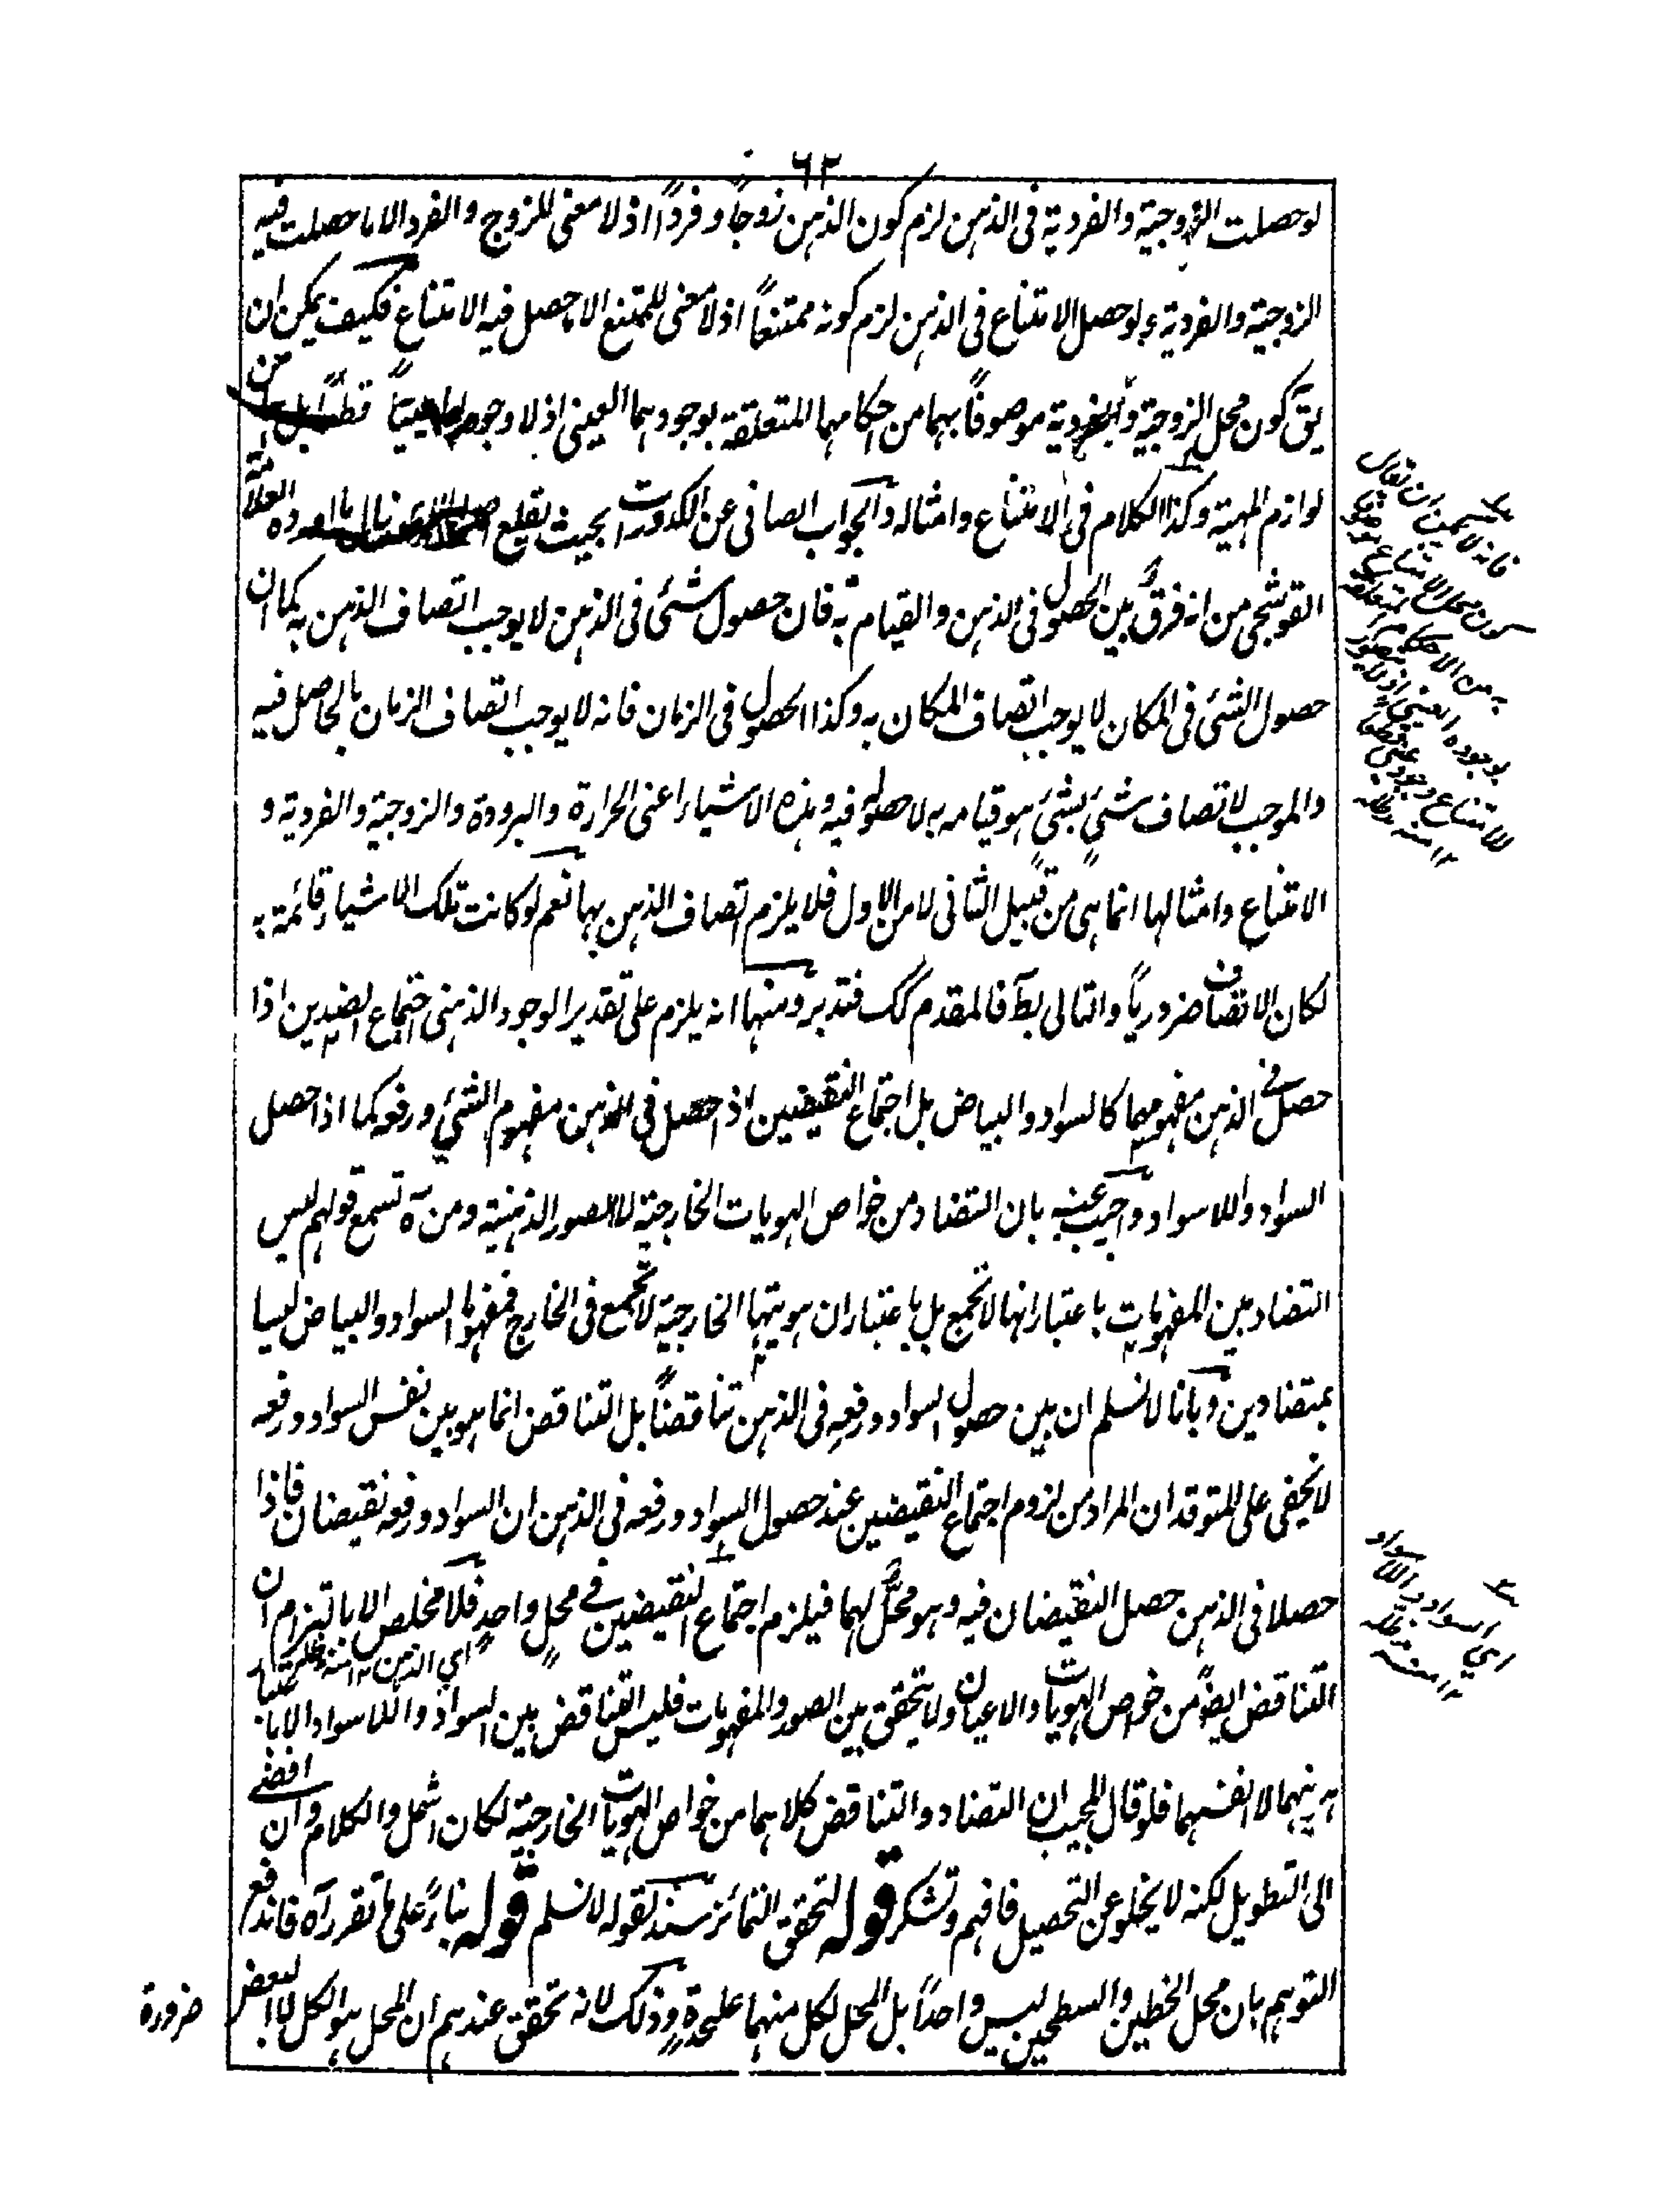 ٦٢
لو حصلت الزوجية والفردية فى الذهن لزم كون الذهن زوجاً وفرداً اذ لا معنى للزوج والفرد الا ما حصلت فيه
الزوجية والفردية ولو حصل الامتناع فى الذهن لزم كونه ممتنعاً اذ لا معنى للممتنع الا ما حصل فيه الامتناع فكيف يمكن ان
يق كون محل الزوجية والفردية موصوفاً بهما من احكامهما المتعلقة بوجودهما العينى اذ لا وجود لهما عينياً قط بل من
لوازم المهية وكذا الكلام فى الامتناع وامثاله والجواب الصافى عن الكدورات بحيث يقلع ما اورده العلامة
القوشجى من انه فرق بين الحصول فى الذهن والقيام به فان حصول شئ فى الذهن لا يوجب اتصاف الذهن به كما ان
حصول الشئ فى المكان لا يوجب اتصاف المكان به وكذا الحصول فى الزمان فانه لا يوجب اتصاف الزمان بالحاصل فيه
والموجب لاتصاف شئ بشئ هو قيامه به لا حصوله فيه وهذه الاشياء اعنى الحرارة والبرودة والزوجية والفردية و
الامتناع وامثالها انما هى من قبيل الثانى لا من الاول فلا يلزم اتصاف الذهن بها نعم لو كانت تلك الاشياء قائمة به
لكان الاتصاف ضرورياً والتالى بط فالمقدم كك فتدبر ومنها انه يلزم على تقدير الوجود الذهنى اجتماع الضدين اذا
حصل فى الذهن مفهومهما كالسواد والبياض بل اجتماع النقيضين اذ احصل فى الذهن مفهوم الشئ ورفعه كما اذا حصل
السواد واللاسواد واجيب عنه بان التضاد من خواص الهويات الخارجية لا الصور الذهنية ومن ثمه تسمع قولهم ليس
التضاد بين المفهومات باعتبار انها لا تجمع بل باعتبار ان هويتها الخارجية لا تجمع فى الخارج فمفهوما السواد والبياض ليسا
بمتضادين وبانا لا نسلم ان بين حصول السواد ورفعه فى الذهن تناقضاً بل التناقض انما هو بين نفس السواد ورفعه
لا يخفى على المتوقد ان المراد من لزوم اجتماع النقيضين عند حصول السواد ورفعه فى الذهن ان السواد ورفعه نقيضان فاذا
حصلا فى الذهن حصل النقيضان فيه وهو محل لهما فيلزم اجتماع النقيضين فى محل واحد فلا مخلص الا بالتزام ان
اى الذهن ١٢ منه
التناقض ايضاً من خواص الهويات والاعيان ولا يتحقق بين الصور والمفهومات فليس التناقض بين السواد واللاسواد الا باعتبار
هويتيهما لا انفسهما فلو قال المجيب ان التضاد والتناقض كلاهما من خواص الهويات الخارجية لكان اشمل والكلام وان افضى
الى التطويل لكنه لا يخلو عن التحصيل فافهم وتشكر قوله لتحقق التمائز سند لقوله لا نسلم قوله بناءً على ما تقرر آه فاندفع
التوهم بان محل الخطين والسطحين ليس واحداً بل المحل لكل منهما عليحدة وذلك لانه تحقق عندهم ان المحل هو الكل لا البعض
ضرورة
فانه لا يمكن ان يقال
كون محل الامتناع موصوفا
به من الاحكام المتعلقة
بوجوده العينى اذ لا يتصور
للامتناع وجود عينى قط
١٢ منه
اى السواد واللاسواد
١٢ منه